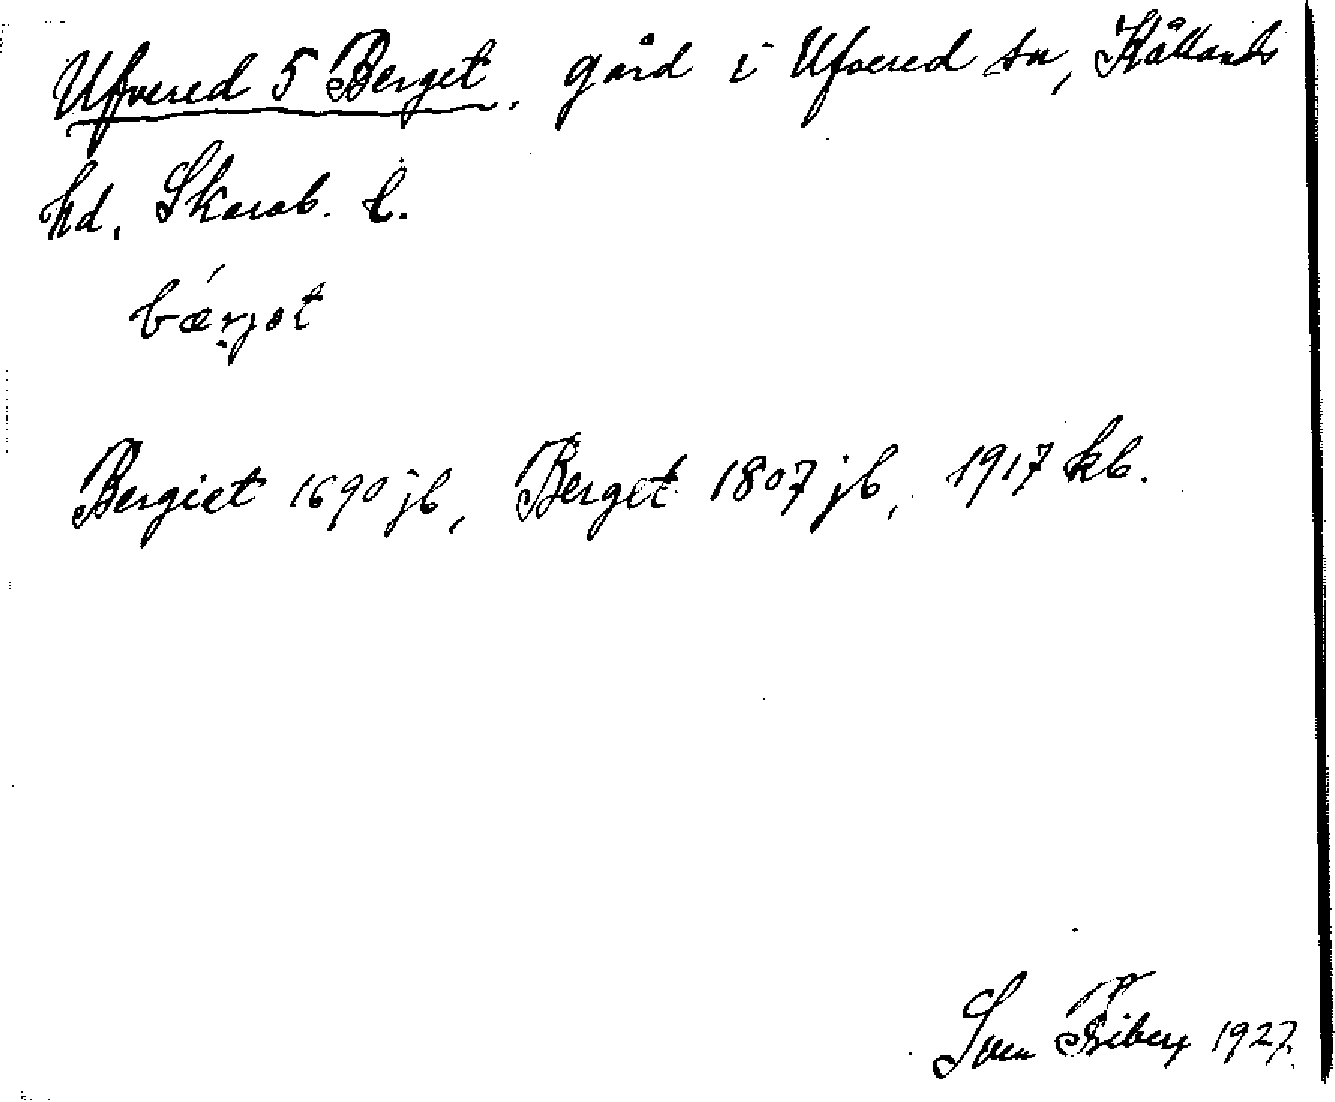 Ufvered 5 Berget, gård i Ufvered sn, Kållands
hd, Skarab. l.
bǽrjət
Bergiet 1690 jb, Berget 1807 jb, 1917 kb.
Sven Friberg 1927.